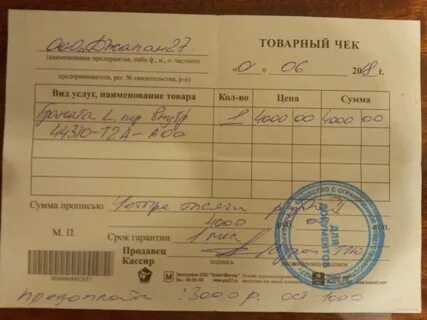 ООО "Джапан 27
ТОВАРНЫЙ ЧЕК
(наименование предприятия, либо ф., и., о. частного
предпринимателя, рег. № свидетельства, р-н)
« 01 » 06 2018 г.
Вид услуг, наименование товара Кол-во Цена Сумма
Граната L пер внутр 1 4000 00 4000 00
44310-T2A-A00
Сумма прописью Четыре тысячи
4000 00
М. П. Срок гарантии 1 мес
Продавец
Кассир
ДЛЯ ДОКУМЕНТОВ
предоплата 3000 р. ост-1000